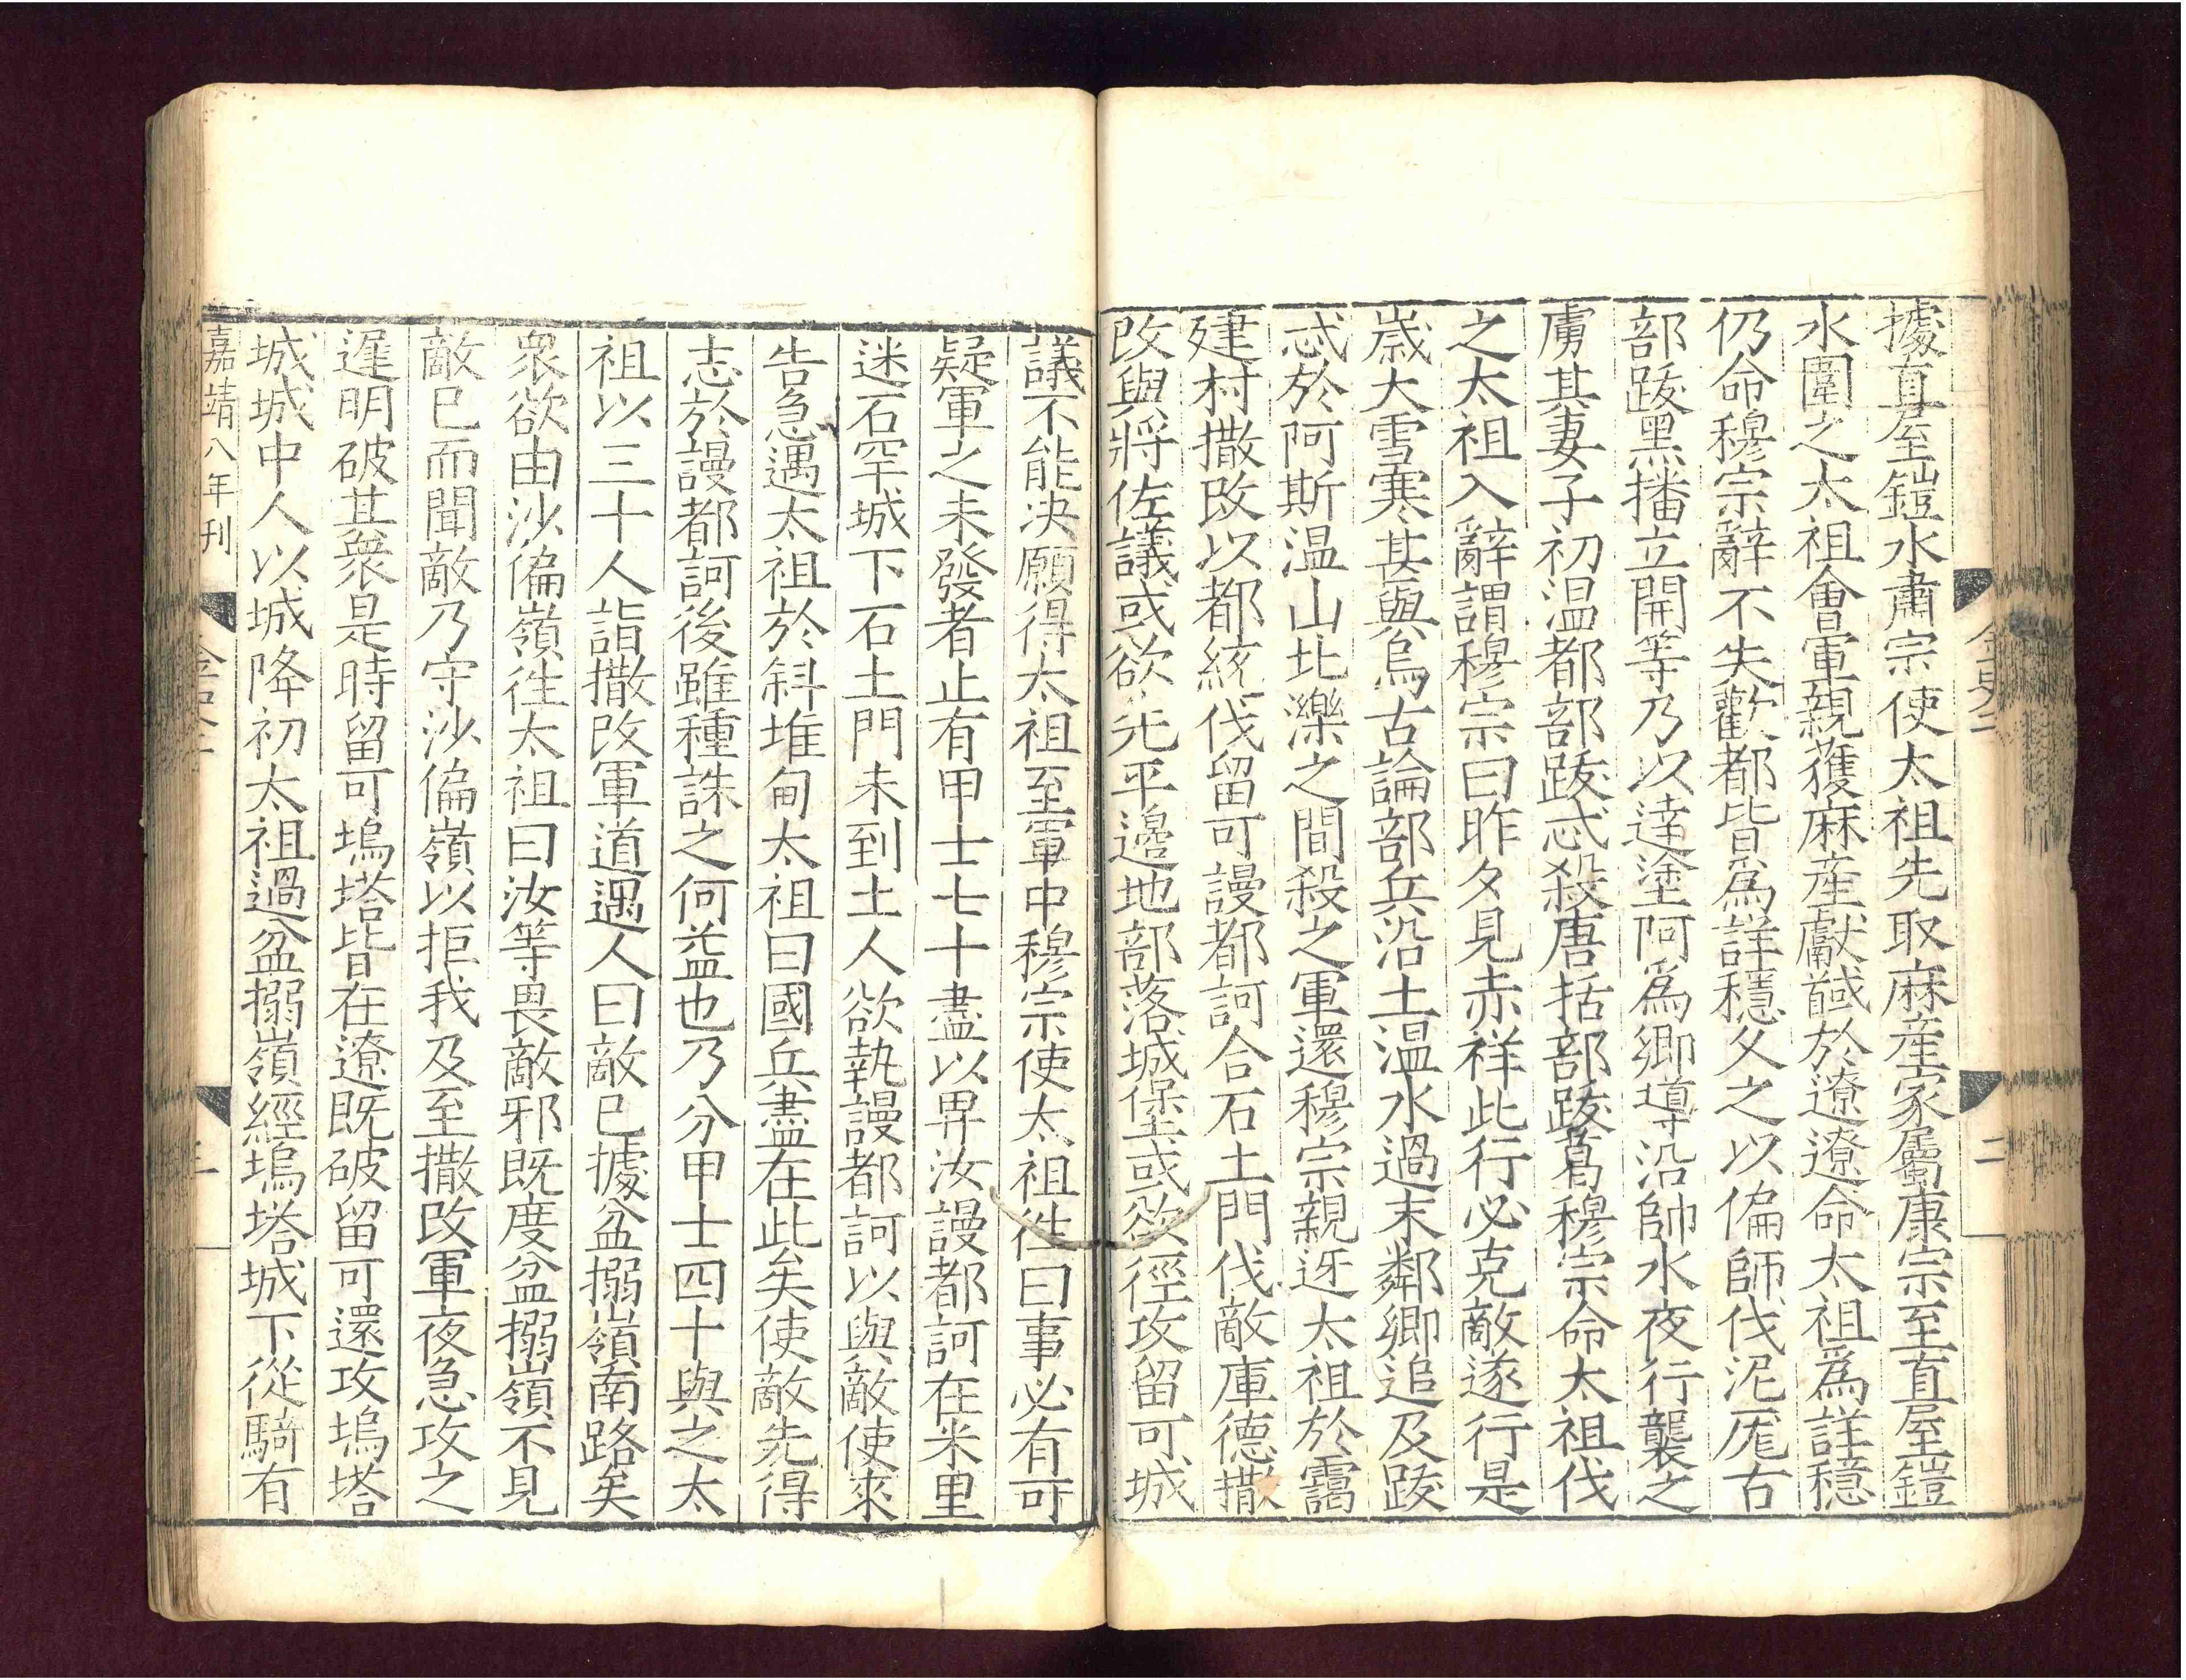 據直屋鎧水肅宗使太祖先取麻産家屬康宗至直屋鎧
水圍之太祖會軍親獲麻産獻馘於遼遼命太祖爲詳穩
仍命穆宗辭不失歡都皆爲詳穩久之以偏師伐泥厖古
部跋黑播立開等乃以達塗阿爲鄉導沿帥水夜行襲之
虜其妻子初温都部跋忒殺唐括部跋葛穆宗命太祖伐
之太祖入辭謂穆宗曰昨夕見赤祥此行必克敵遂行是
歲大雪寒甚與烏古論部兵沿土温水過末鄰鄉追及跋
忒於阿斯温山北濼之間殺之軍還穆宗親迓太祖於靄
建村撒改以都統伐留可謾都訶合石土門伐敵庫德撒
改與將佐議或欲先平邊地部落城堡或欲徑攻留可城
議不能决願得太祖至軍中穆宗使太祖往曰事必有可
疑軍之未發者止有甲士七十盡以畀汝謾都訶在米里
迷石罕城下石土門未到土人欲執謾都訶以與敵使來
告急遇太祖於斜堆甸太祖曰國兵盡在此矣使敵先得
志於謾都訶後雖種誅之何益也乃分甲士四十與之太
祖以三十人詣撒改軍道遇人曰敵已據盆搦嶺南路矣
衆欲由沙偏嶺往太祖曰汝等畏敵邪既度盆搦嶺不見
敵已而聞敵乃守沙偏嶺以拒我及至撒改軍夜急攻之
遲明破其衆是時留可塢塔皆在遼既破留可還攻塢塔
城城中人以城降初太祖過盆搦嶺經塢塔城下從騎有
嘉靖八年刊